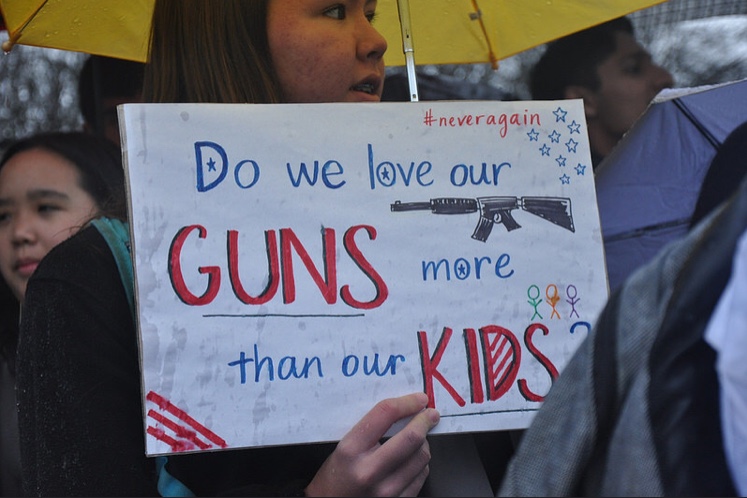 #neveragain
Do we love our
GUNS more
than our KIDS?